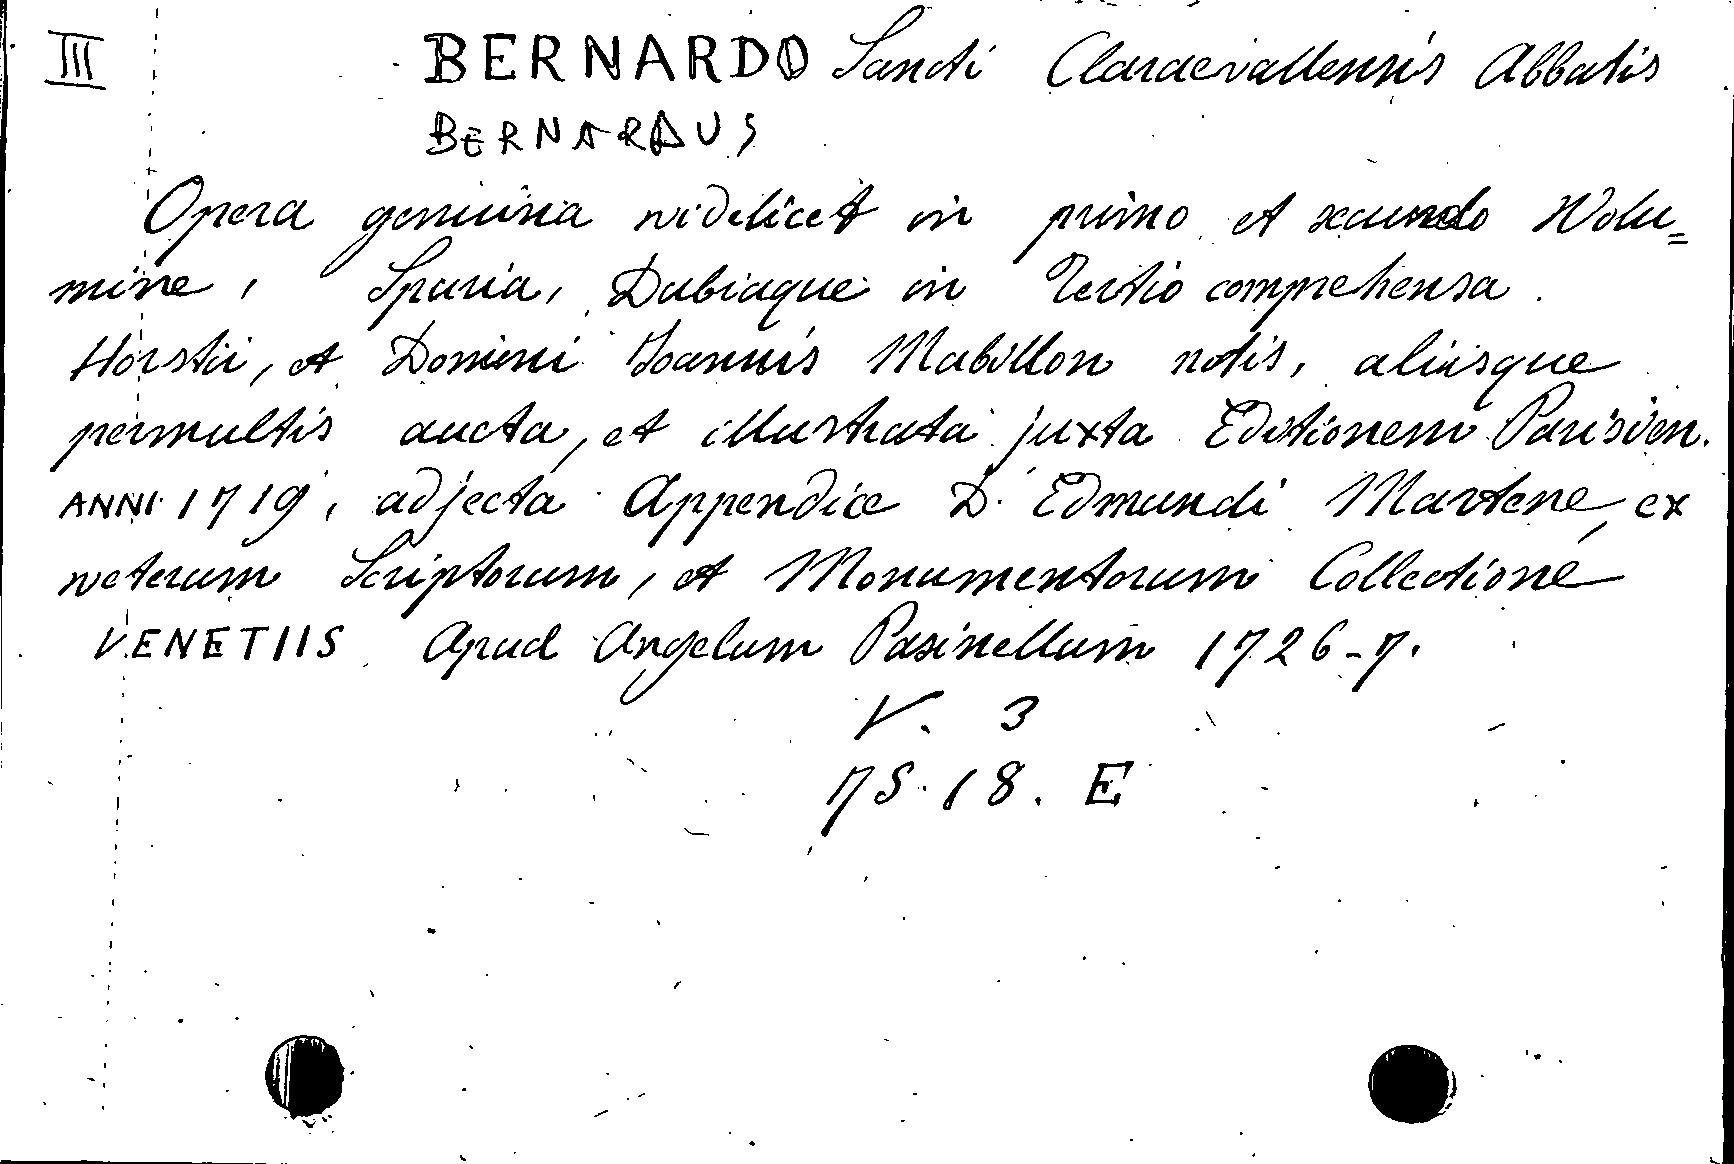 III BERNARDO Sancti Claraevallensis Abbatis
BERNARDUS
Opera genuina videlicet in primo et secundo Volu=
mine, Spuria, Dubiaque in Tertio comprehensa.
Horstii, et Domini Joannis Mabillon notis, aliisque
permultis aucta, et illustrata juxta Editionem Parisien.
ANNI 1719, adjecta Appendice D. Edmundi Martene, ex
veterum Scriptorum, et Monumentorum Collectione
VENETIIS Apud Angelum Pasinellum 1726-7.
V. 3
75.18. E